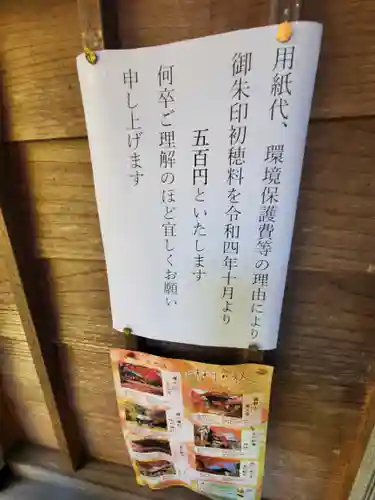 用紙代、環境保護費等の理由により
御朱印初穂料を令和四年十月より
五百円といたします
何卒ご理解のほど宜しくお願い
申し上げます